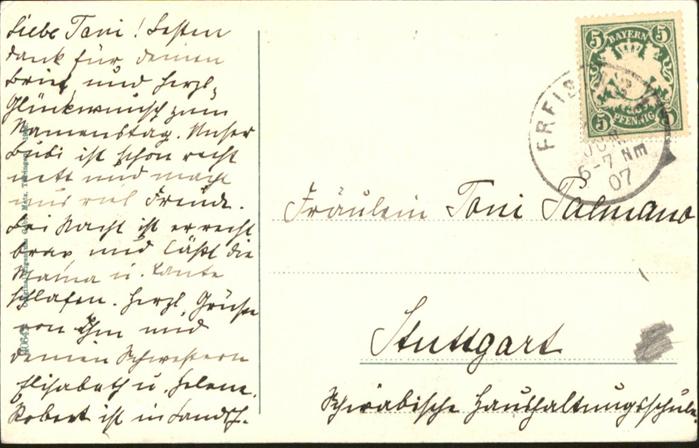 Liebe Toni! Besten
Dank für deinen
Brief und herzl.
Glückwunsch zum
Namenstag. Unser
Bubi ist schon recht
nett und macht
uns viel Freude.
Bei Nacht ist er recht
brav und läßt die
Mama u. Tante
schlafen. Herzl. Grüße
von Ihm und
deinen Schwestern
Elisabeth u. Helene.
Robert ist in Landsh.
5 BAYERN 5
5 PFENNIG 5
FREISING
JUN
6-7 NM
07
Fräulein Toni
Stuttgart
Schwäbische Haushaltungsschule